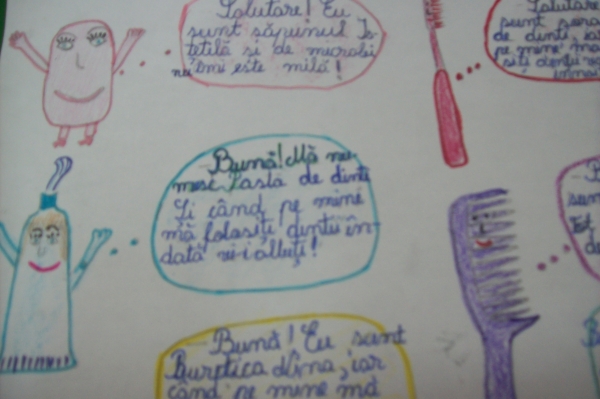 Salutare! Eu
sunt săpunul Is-
tetilă si de microbi
nu îmi este milă!
Salutare
sunt
de dinti, iar
pe mine mă
Bună! Mă nu-
mesc Pasta de dinti
Și când pe mine
mă folosiți dinții în-
dată vi-i albiți!
sun
Bună! Eu sunt
Buretica Nina, iar
când pe mine mă